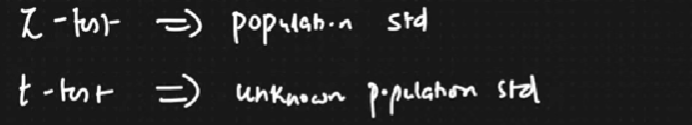 Z-test => population std
t-test => unknown population std